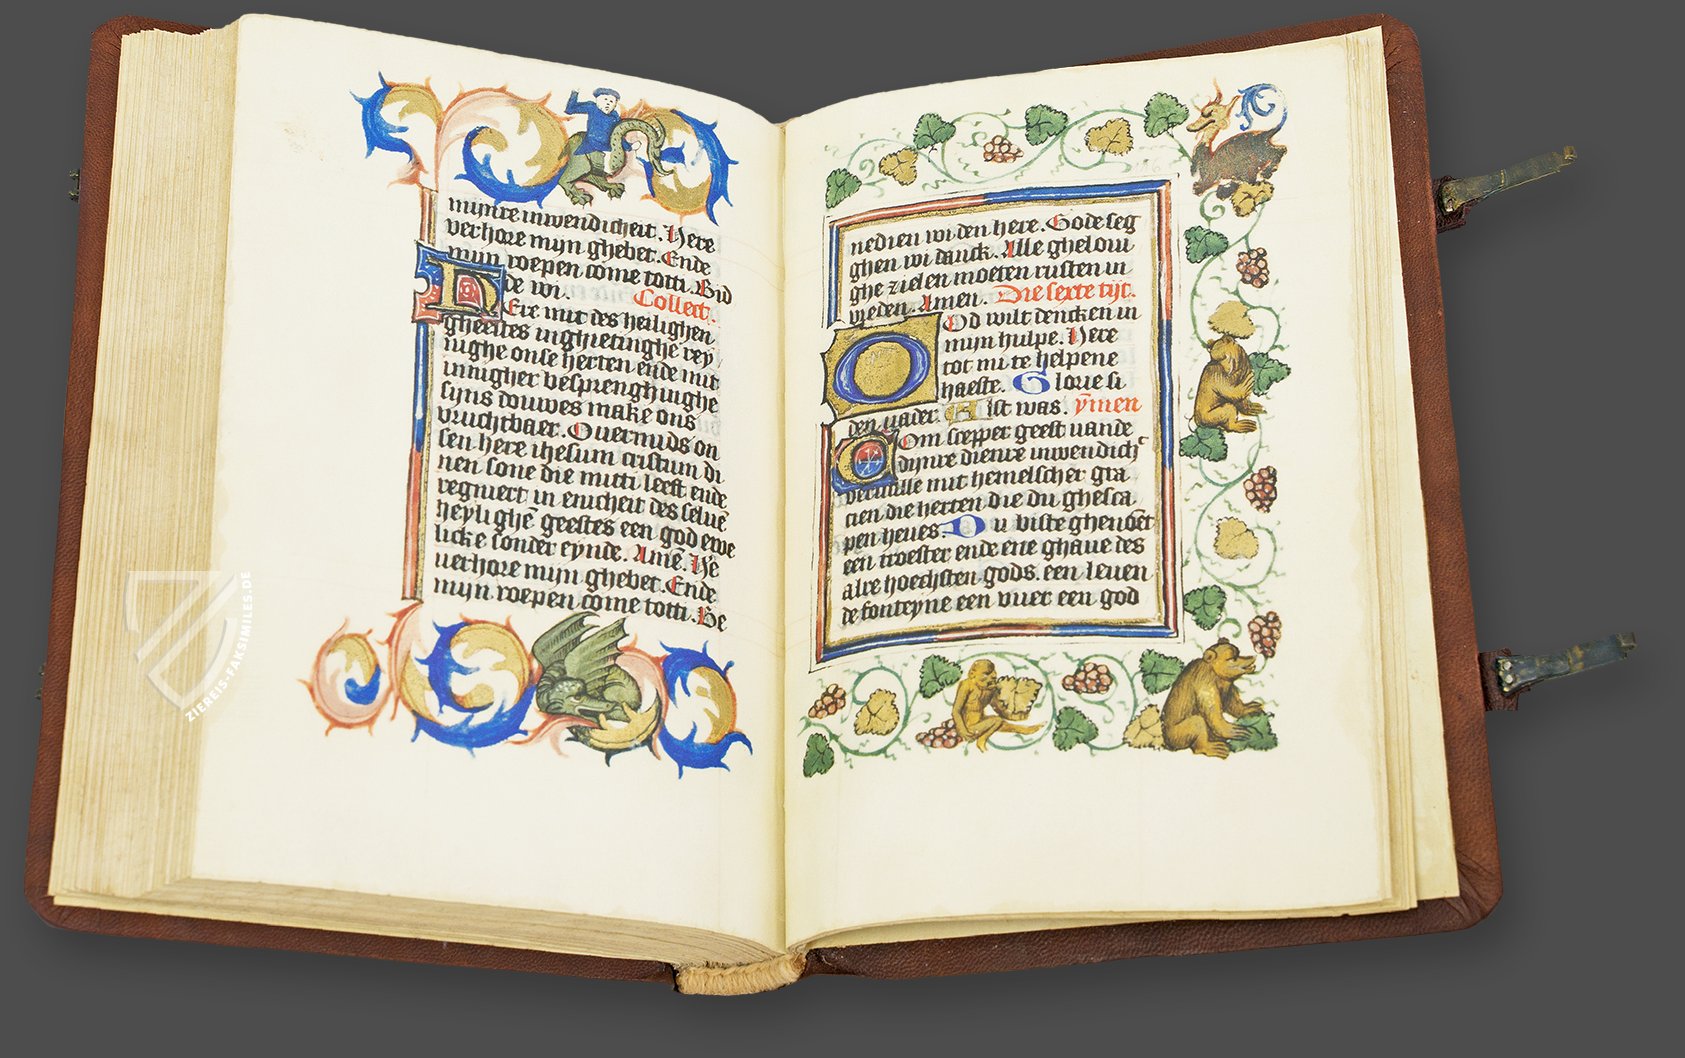 mijnre inwendicheit. Here
verhore mijn ghebet. Ende
mijn roepen come totti. Bid
te wi. Collect.
HEre mit des heilighen
gheestes inghietinghe rey
nighe onse herten ende mit
innigher besprenghinghe
sijns douwes make ons
vruchtbaer. Ouermids on
sen here ihesum cristum di
nen sone die mitti leeft ende
regniert in enicheit des seluē
heylighē geestes een god ewe
licke sonder eynde. Amē. He
uerhore mijn ghebet. Ende
mijn roepen come totti. Be
nedien wi den here. Gode seg
ghen wi danck. Alle gheloui
ghe zielen moeten rusten in
vreden. Amen. Die sexte tijt.
GOd wilt dencken in
mijn hulpe. Here
tot mi te helpene
haeste. Glorie si
den vader. Alst was. ymen
COm scepper geest vande
dijnre dienre inwendich
veruulle mit hemelscher gra
cien die herten die du ghesca
pen heues. Du biste ghenoēt
een troester ende ene ghaue des
alre hoechsten gods. een leuen
de fonteyne een vuer een god
ZIEREIS-FAKSIMILES.DE